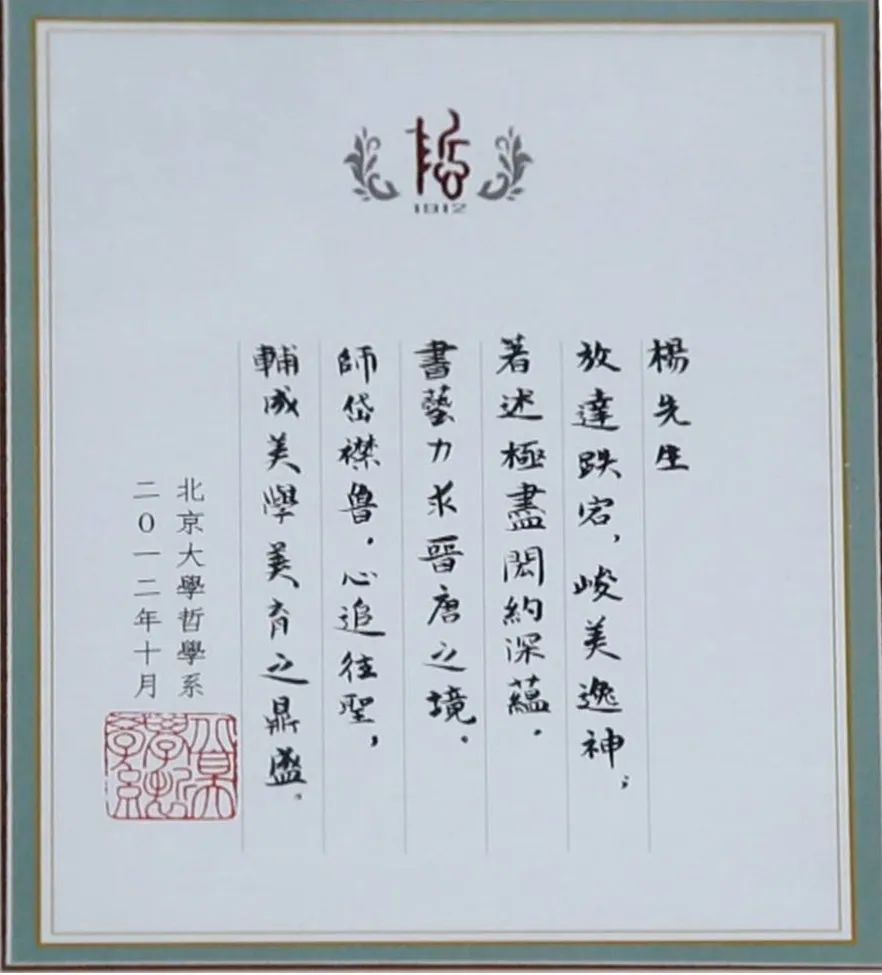 哲
1912
楊先生
放達跌宕，峻美逸神；
著述極盡閎約深蘊．
書藝力求晉唐之境。
師岱襟魯．心追往聖，
輔成美學美育之鼎盛。
北京大學哲學系
二〇一二年十月
北京大學哲學系